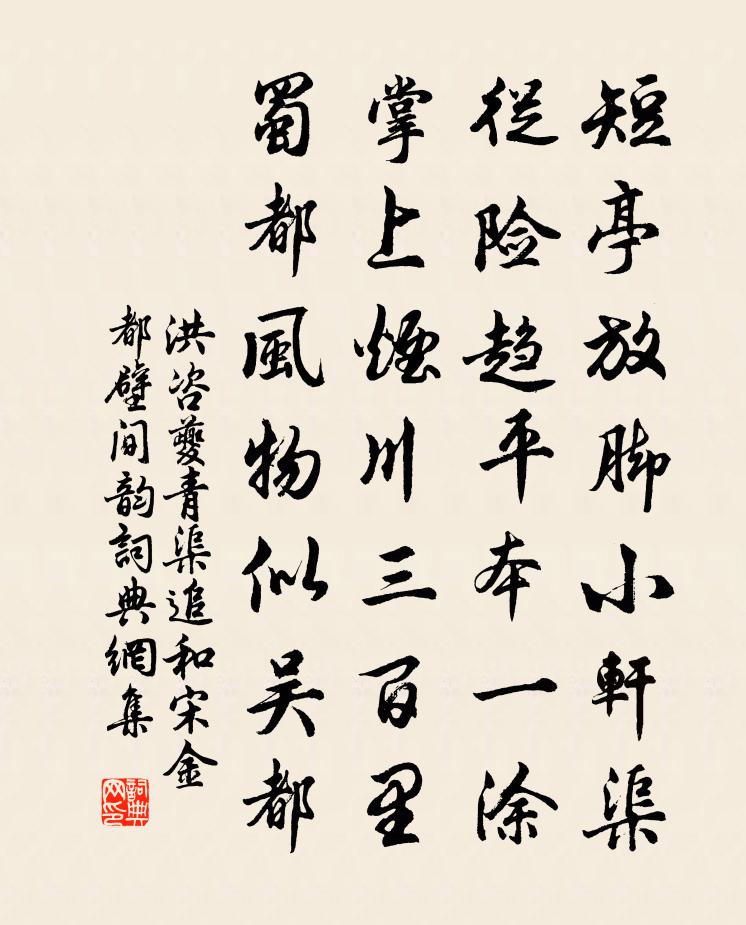 短亭放脚小軒渠
從险趋平本一涂
掌上煙川三百里
蜀都風物似吴都
洪咨夔青渠追和宋金
都壁间韵詞典網集
詞典网印